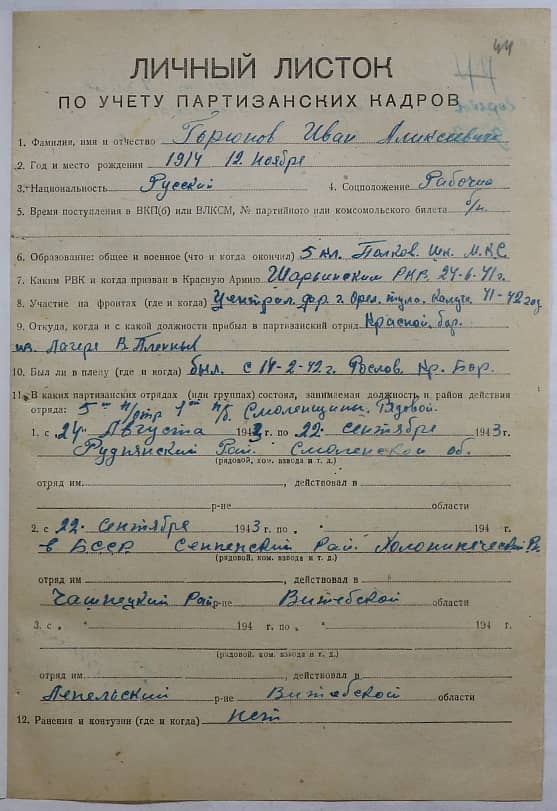 44
ЛИЧНЫЙ ЛИСТОК
ПО УЧЕТУ ПАРТИЗАНСКИХ КАДРОВ
1. Фамилия, имя и отчество Горюнов Иван Аликсиевич
2. Год и место рождения 1914 12 Ноября
3. Национальность Русский 4. Соцположение Рабочий
5. Время поступления в ВКП(б) или ВЛКСМ, № партийного или комсомольского билета б/п.
6. Образование: общее и военное (что и когда окончил) 5 кл. Полков. шк. М.К.С.
7. Каким РВК и когда призван в Красную Армию Шарьинским 24-6-41 г.
8. Участие на фронтах (где и когда) Централ. фр. г. Орел, тула, Калуга 41-42 год
9. Откуда, когда и с какой должности прибыл в партизанский отряд Красной. бор.
из Лагеря В. Пленных
10. Был ли в плену (где и когда) был. с 14-2-42 г. Рослов. Кр. Бор.
11. В каких партизанских отрядах (или группах) состоял, занимаемая должность и район действия
отряда: 5ый 1ый Смоленщины. Рядовой.
1. с 24. Августа 1943 г. по 22 сентября 1943 г.
Руднянский Рай. Смоленской об.
(рядовой, ком. взвода и т. д.)
отряд им. , действовал в
р-не области
2. с 22. Сентября 1943 г. по „ 194 г.
в БССР Сенненский Рай. Холопиничесский Рн
(рядовой, ком. взвода и т. д.)
отряд им. , действовал в
Чашнецкий Рай р-не Витебской области
3. с „ 194 г. по „ 194 г.
(рядовой, ком. взвода и т. д.)
отряд им. , действовал в
Лепельский р-не Витебской области
12. Ранения и контузии (где и когда) нет